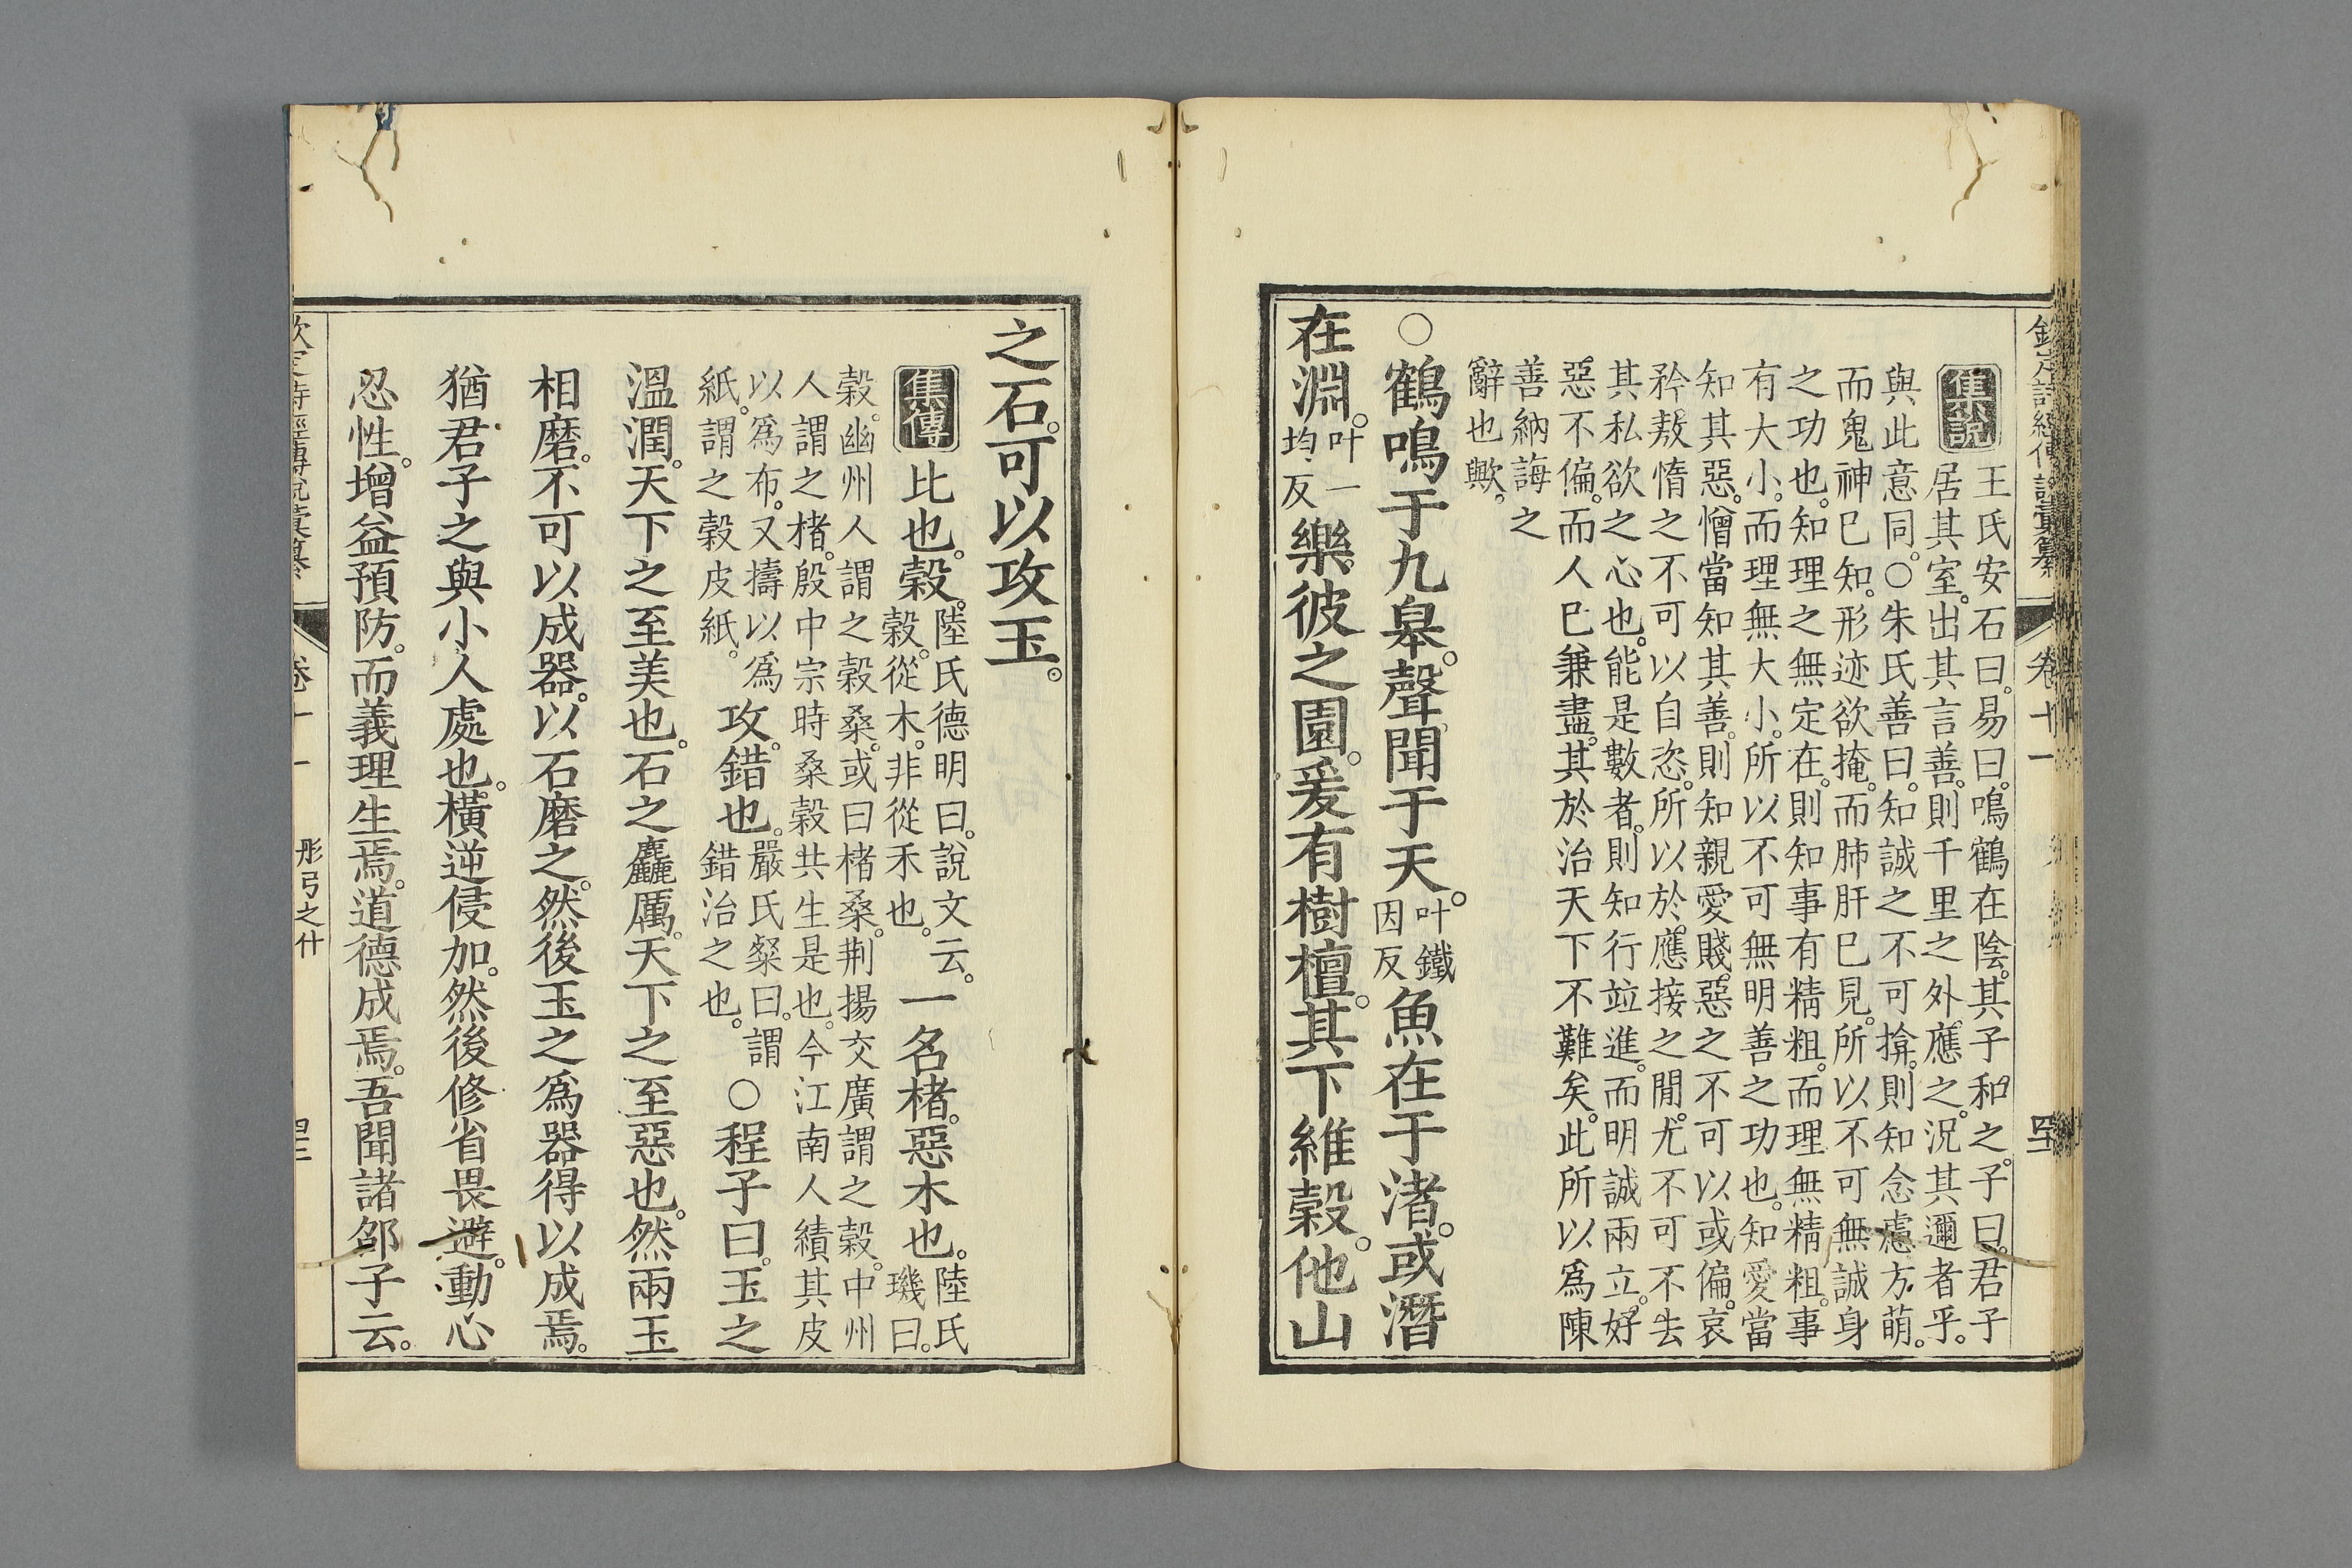 欽定詩經傳說彙纂 卷十一
集說
王氏安石曰。易曰。鳴鶴在陰。其子和之。子曰。君子
居其室。出其言善。則千里之外應之。況其邇者乎。
與此意同。○朱氏善曰。知誠之不可揜。則知念慮方萌。
而鬼神已知。形迹欲掩。而肺肝已見。所以不可無誠身
之功也。知理之無定在。則知事有精粗。而理無精粗。事
有大小。而理無大小。所以不可無明善之功也。知愛當
知其惡。憎當知其善。則知親愛賤惡之不可以或偏。哀
矜敖惰之不可以自恣。所以於應接之間。尤不可不去
其私欲之心也。能是數者。則知行竝進。而明誠兩立。好
惡不偏。而人已兼盡。其於治天下不難矣。此所以爲陳
善納誨之
辭也歟。
○鶴鳴于九皋。聲聞于天。叶鐵因反魚在于渚。或潛
在淵。叶一均反樂彼之園。爰有樹檀。其下維榖。他山
之石。可以攻玉。
集傳
比也。榖。陸氏德明曰。說文云。榖。從木。非從禾也。一名楮。惡木也。陸氏璣曰。
榖。幽州人謂之榖桑。或曰楮桑。荆揚交廣謂之榖。中州
人謂之楮。殷中宗時桑榖共生是也。今江南人績其皮
以爲布。又擣以爲紙。謂之榖皮紙。攻。錯也。嚴氏粲曰。謂錯治之也。○程子曰。玉之
溫潤。天下之至美也。石之麤厲。天下之至惡也。然兩玉
相磨。不可以成器。以石磨之。然後玉之爲器得以成焉。
猶君子之與小人處也。橫逆侵加。然後修省畏避。動心
忍性。增益預防。而義理生焉。道德成焉。吾聞諸邵子云。
欽定詩經傳說彙纂 卷十一 彤弓之什